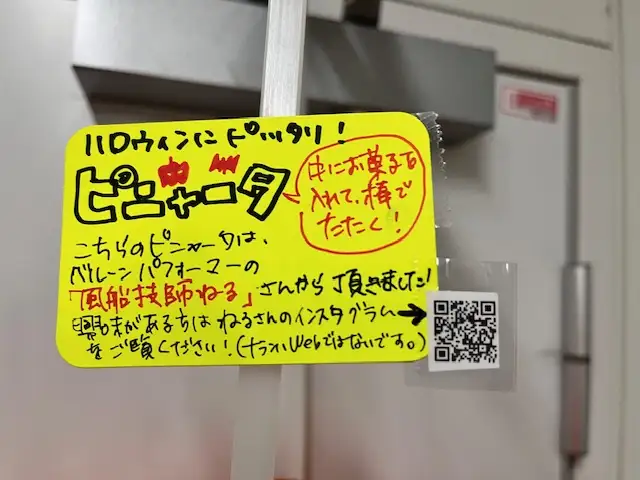 ハロウィンにピッタリ!
ピニャータ
中にお菓子を
入れて、棒で
たたく!
こちらのピニャータは、
バルーンパフォーマーの
「風船技師ねる」さんから頂きました!
興味がある方は ねるさんのインスタグラム→
をご覧ください!(ナランハWebではないです。)